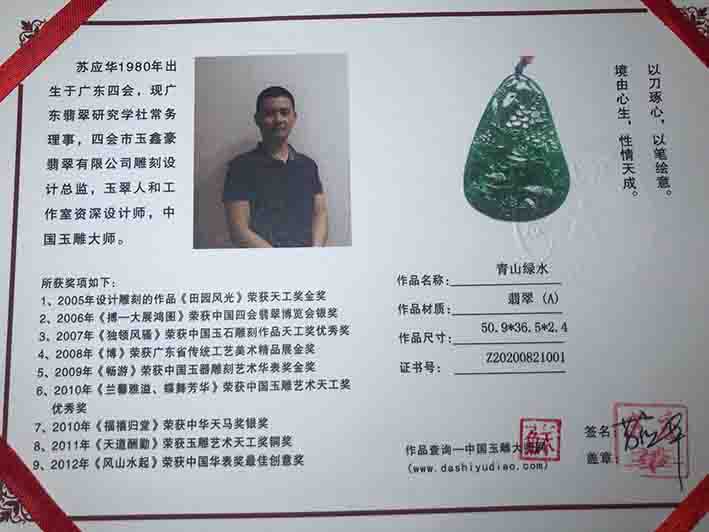 苏应华1980年出
生于广东四会，现广
东翡翠研究学社常务
理事，四会市玉鑫豪
翡翠有限公司雕刻设
计总监，玉翠人和工
作室资深设计师，中
国玉雕大师。
以刀琢心，以笔绘意。
境由心生，性情天成。
所获奖项如下：
1、2005年设计雕刻的作品《田园风光》荣获天工奖金奖
2、2006年《搏一大展鸿图》荣获中国四会翡翠博览会银奖
3、2007年《独领风骚》荣获中国玉石雕刻作品天工奖优秀奖
4、2008年《博》荣获广东省传统工艺美术精品展金奖
5、2009年《畅游》荣获中国玉器雕刻艺术华表奖金奖
6、2010年《兰馨雅溢、蝶舞芳华》荣获中国玉雕艺术天工奖
优秀奖
7、2010年《福禧归堂》荣获中华天马奖银奖
8、2011年《天道酬勤》荣获玉雕艺术天工奖铜奖
9、2012年《风山水起》荣获中国华表奖最佳创意奖
作品名称：青山绿水
作品材质：翡翠（A）
作品尺寸：50.9*36.5*2.4
证书号：Z20200821001
作品查询—中国玉雕大师网
(www.dashiyudiao.com)
苏
签名：苏应华
盖章：